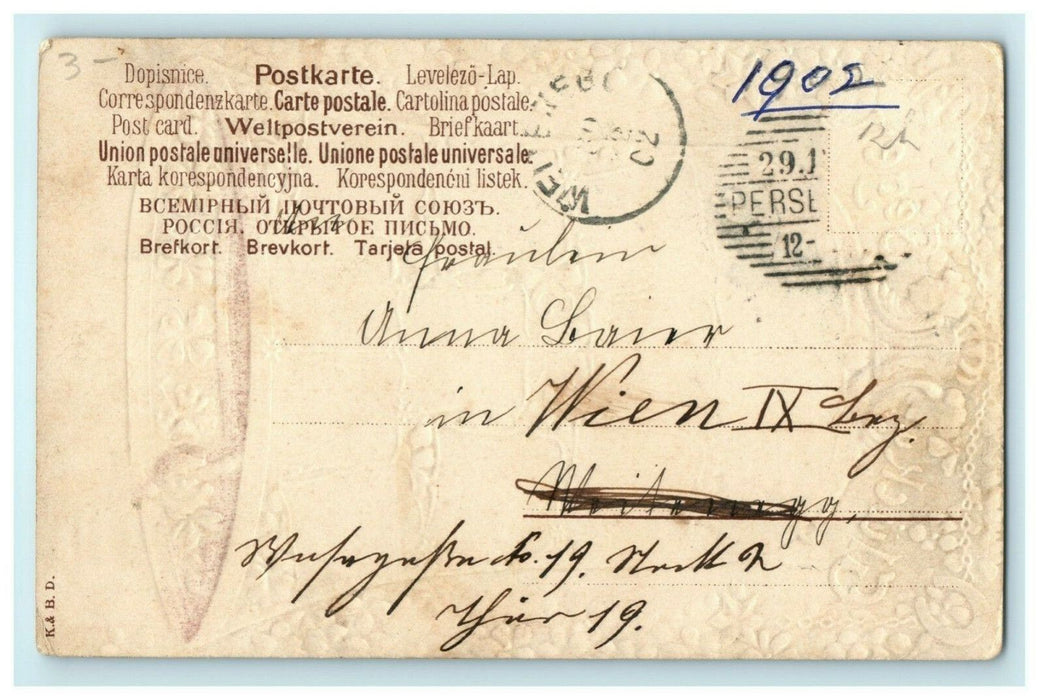 3-
1902
Dopisnice. Postkarte. Levelező-Lap.
Correspondenzkarte. Carte postale. Cartolina postale.
Post card. Weltpostverein. Briefkaart.
Union postale universelle. Unione postale universale.
Karta korespondencyjna. Korespondenčni listek.
ВСЕМІРНЫЙ ПОЧТОВЫЙ СОЮЗЪ.
РОССІЯ. ОТКРЫТОЕ ПИСЬМО.
Brefkort. Brevkort. Tarjeta postal.
29.1
PERSE
12-
Fräulein
Anna Baier
in Wien IX Bez.
No. 19. Stock 2
Thür 19.
K. & B. D.